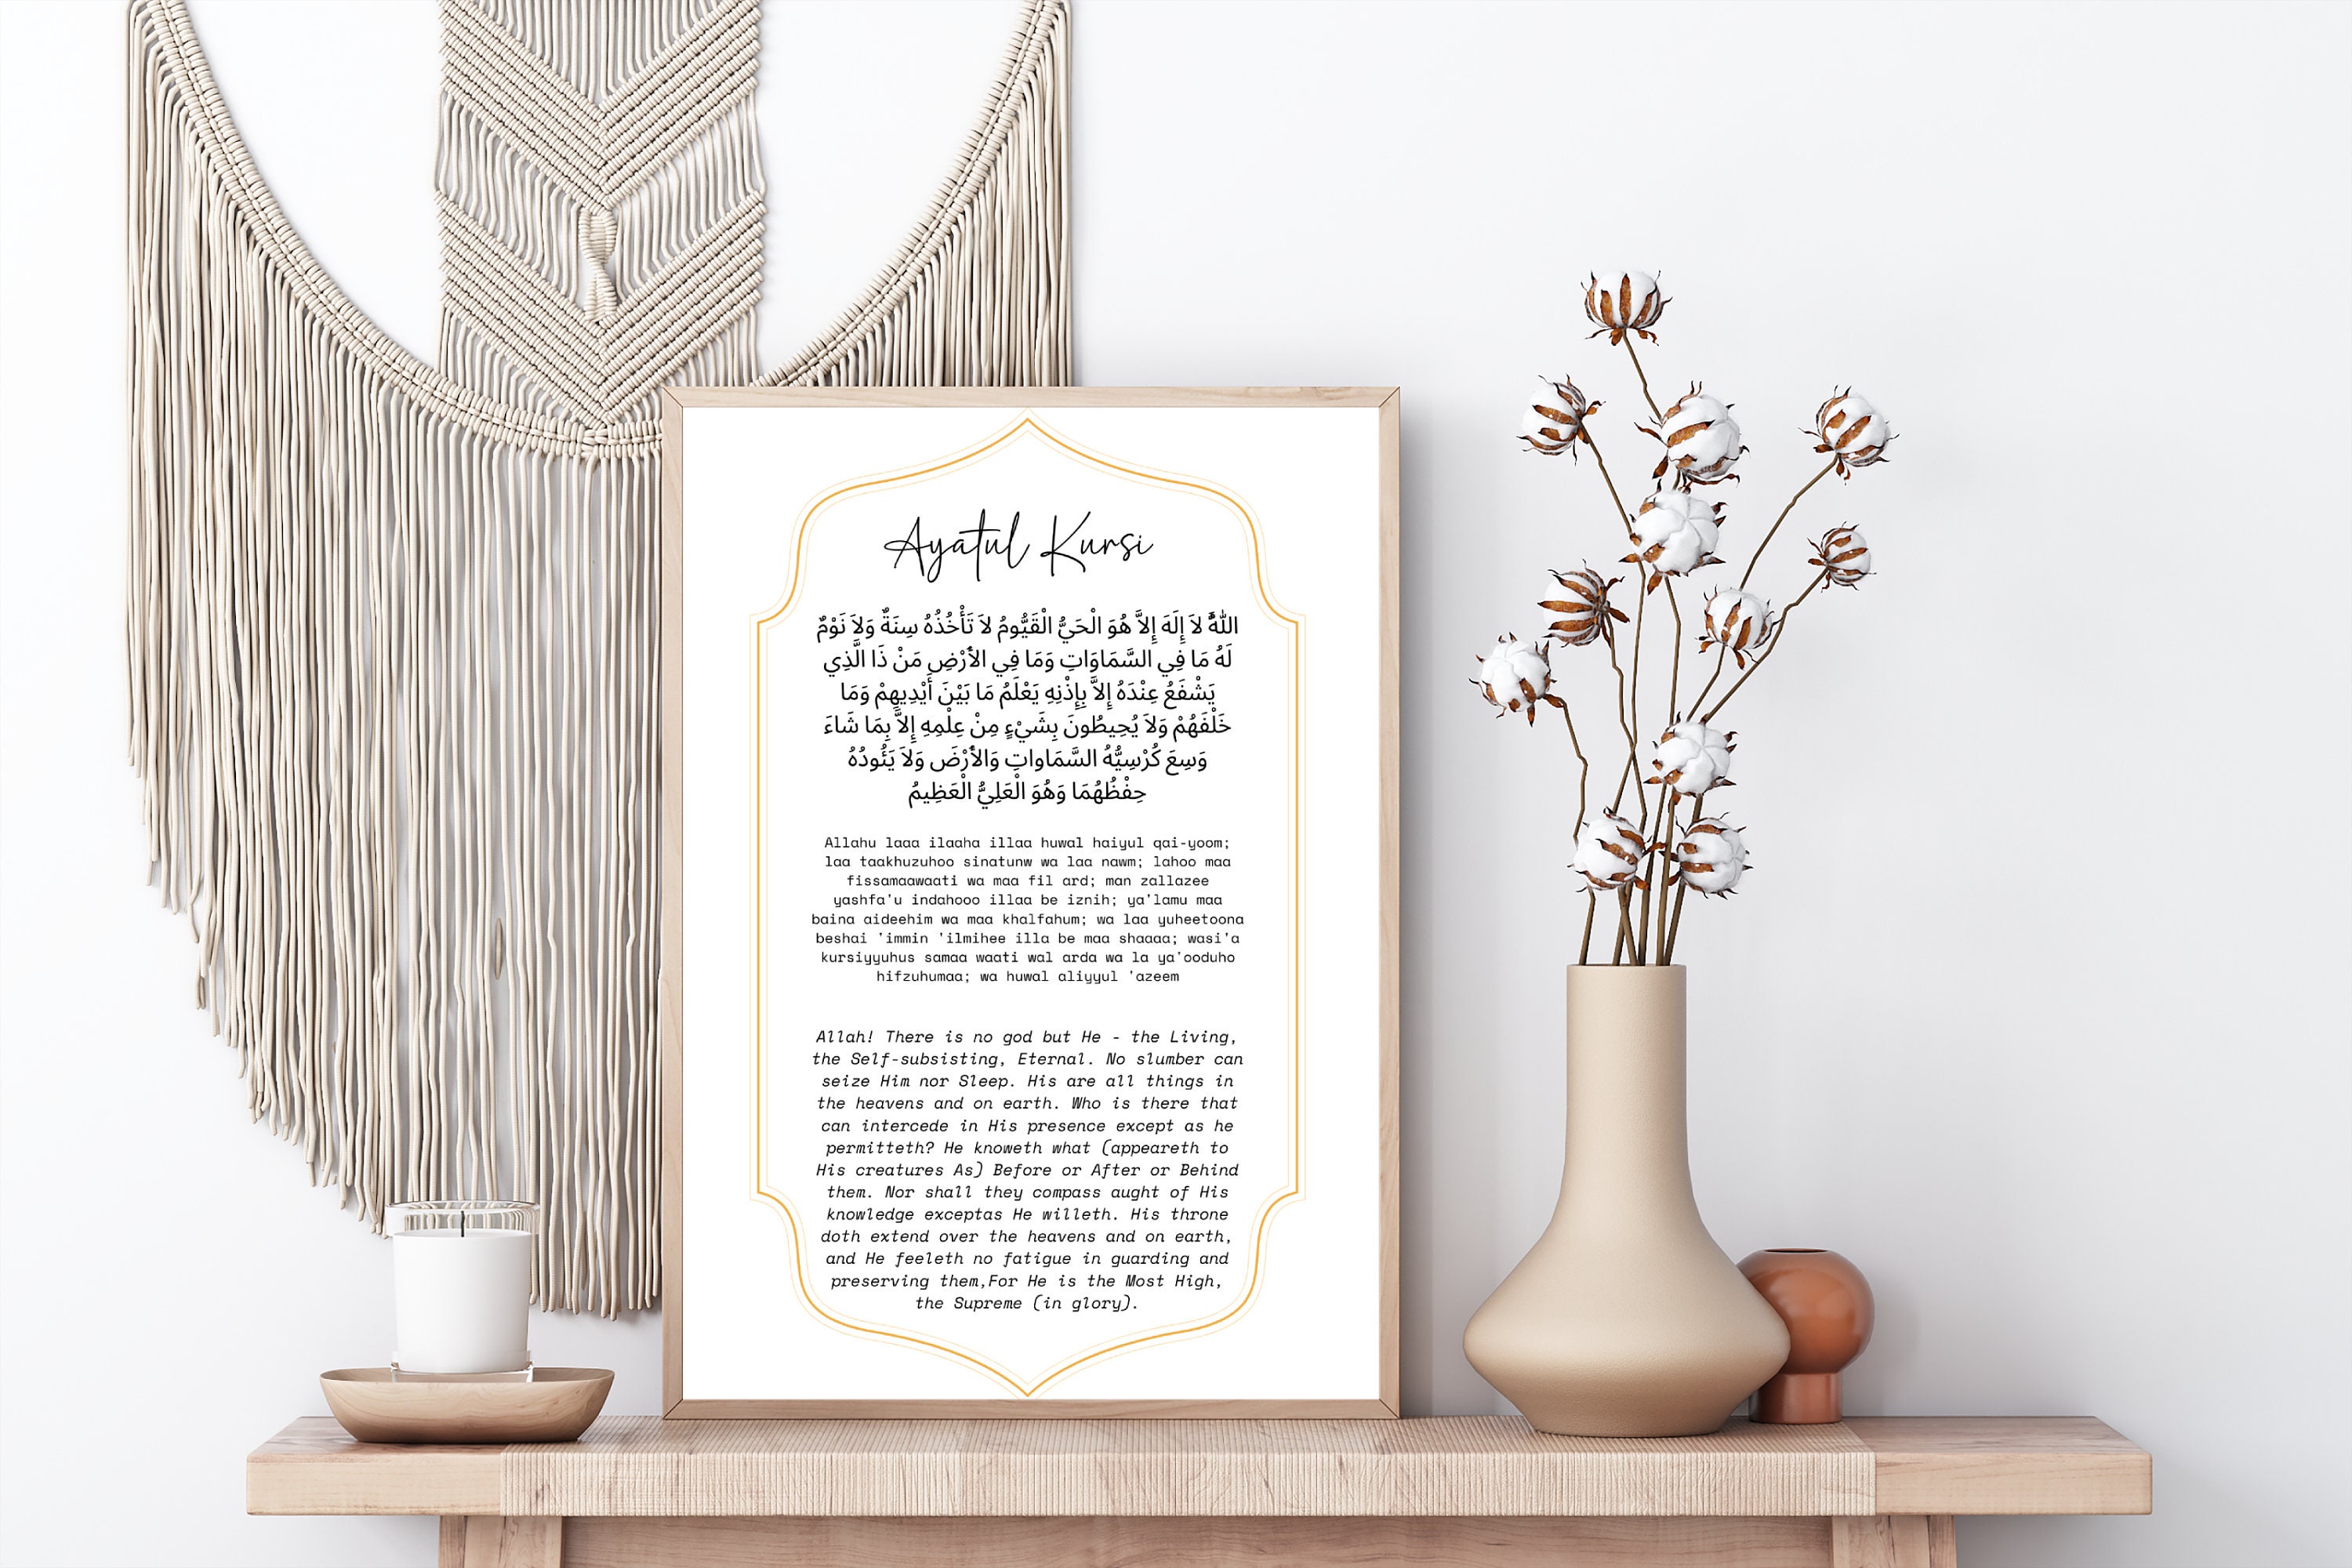 Ayatul Kursi
اللّهُ لاَ إِلَهَ إِلاَّ هُوَ الْحَيُّ الْقَيُّومُ لاَ تَأْخُذُهُ سِنَةٌ وَلاَ نَوْمٌ
لَهُ مَا فِي السَّمَاوَاتِ وَمَا فِي الأَرْضِ مَنْ ذَا الَّذِي
يَشْفَعُ عِنْدَهُ إِلاَّ بِإِذْنِهِ يَعْلَمُ مَا بَيْنَ أَيْدِيهِمْ وَمَا
خَلْفَهُمْ وَلاَ يُحِيطُونَ بِشَيْءٍ مِنْ عِلْمِهِ إِلاَّ بِمَا شَاءَ
وَسِعَ كُرْسِيُّهُ السَّمَاواتِ وَالأَرْضَ وَلاَ يَئُودُهُ
حِفْظُهُمَا وَهُوَ الْعَلِيُّ الْعَظِيمُ
Allahu laaa ilaaha illaa huwal haiyul qai-yoom;
laa taakhuzuhoo sinatunw wa laa nawm; lahoo maa
fissamaawaati wa maa fil ard; man zallazee
yashfa'u indahooo illaa be iznih; ya'lamu maa
baina aideehim wa maa khalfahum; wa laa yuheetoona
beshai 'immin 'ilmihee illa be maa shaaaa; wasi'a
kursiyyuhus samaa waati wal arda wa la ya'ooduho
hifzuhumaa; wa huwal aliyyul 'azeem
Allah! There is no god but He - the Living,
the Self-subsisting, Eternal. No slumber can
seize Him nor Sleep. His are all things in
the heavens and on earth. Who is there that
can intercede in His presence except as he
permitteth? He knoweth what (appeareth to
His creatures As) Before or After or Behind
them. Nor shall they compass aught of His
knowledge exceptas He willeth. His throne
doth extend over the heavens and on earth,
and He feeleth no fatigue in guarding and
preserving them,For He is the Most High,
the Supreme (in glory).